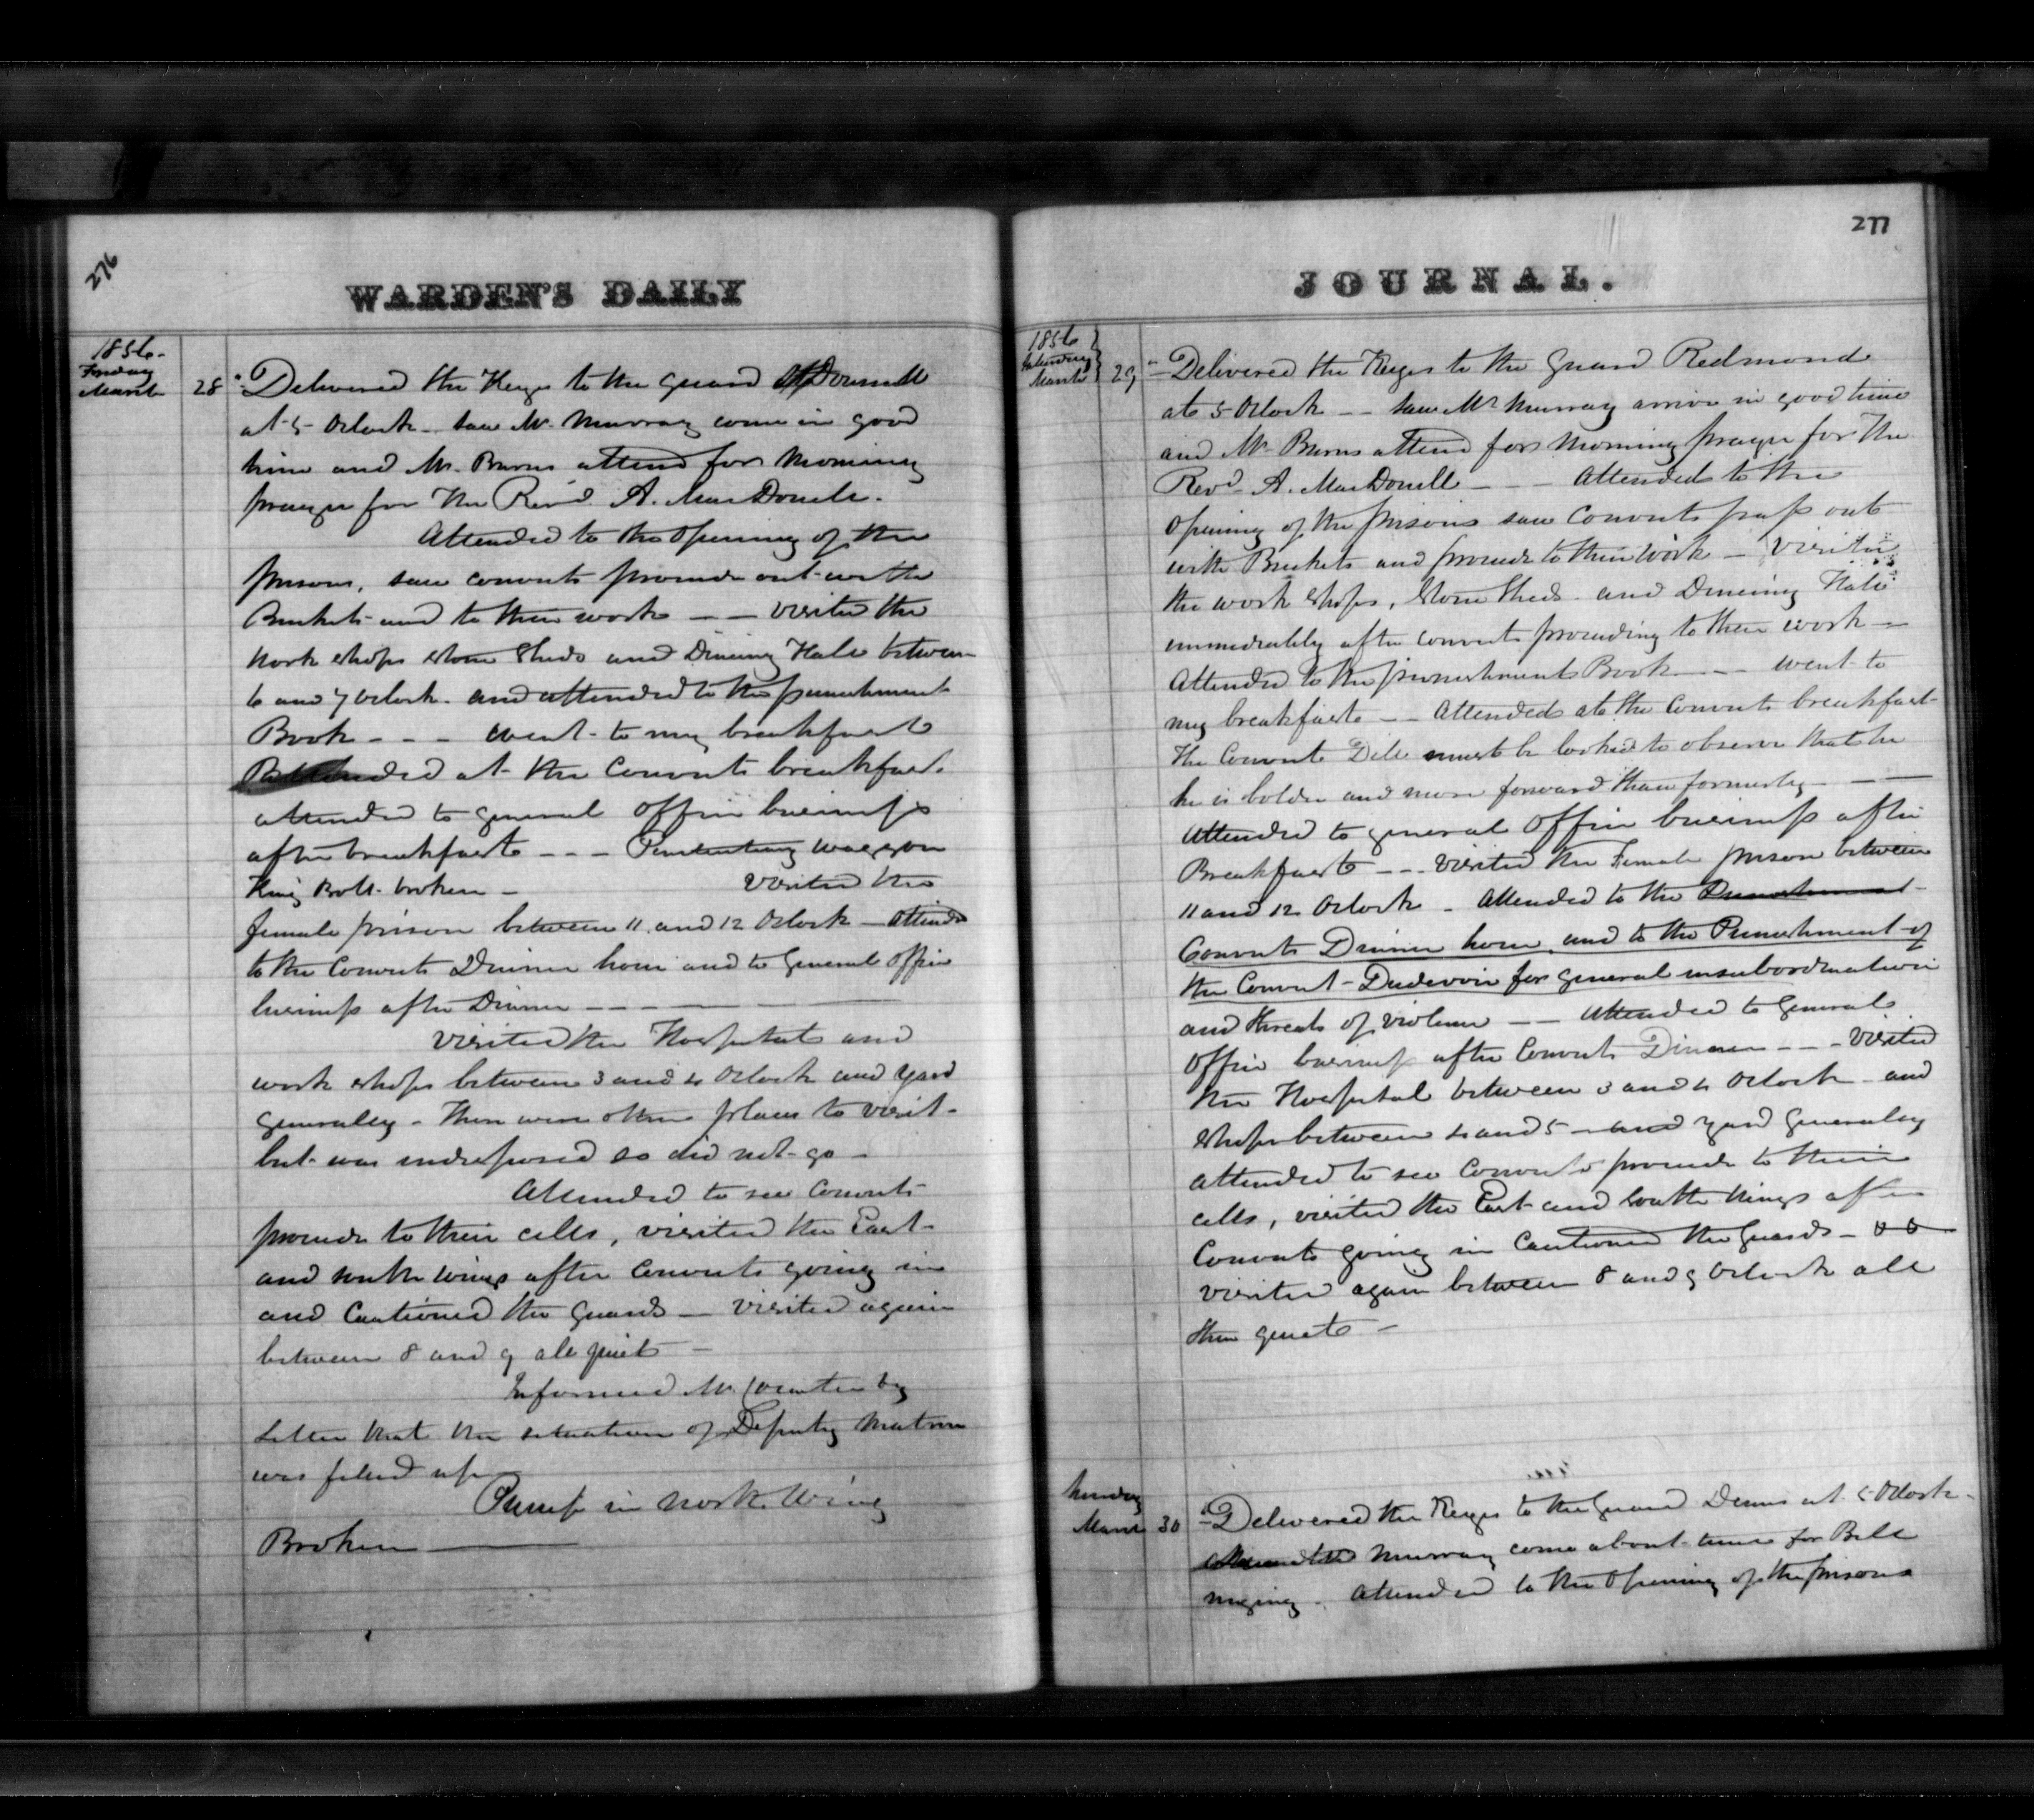 276
WARDEN'S DAILY
1856.
Friday
March 28
Delivered the Keys to the guard
at 5 Oclock - saw Mr. Murray come in good
time and Mr. Burns attend for morning
prayer for the Revd. A. MacDonell.
Attended to the Opening of the
prisons, saw convicts proceede out with
Buckets and to their work -- visited the
work shops stone sheds and Dineing Hall between
6 and 7 Oclock. and attended to the punishment
Book --- went to my breakfast
Attended at the Convicts breakfast.
attended to general office business
after breakfast --- Penitentiary waggon
King Bolt broken - visited the
female prison between 11 and 12 Oclock - attended
to the Convicts Dinner hour and to General office
business after Dinner ---
visited the Hospital and
work shops between 3 and 4 Oclock and yard
generaley - There were other places to visit -
but was indisposed so did not go -
Attended to see Convicts
proceede to their cells, visited the East
and south wings after Convicts going in
and Cautioned the Guards - visited again
between 8 and 9 all quiet -
Informed Mr. by
Letter that the situation of Deputy Matron
was filled up
Pump in North Wing
Broken
277
JOURNAL.
1856
Saturday
March 29
Delivered the Keys to the Guard Redmond
at 5 Oclock -- saw Mr Murray arrive in good time
and Mr. Burns attend for morning prayer for the
Revd. A. MacDonell --- Attended to the
Opening of the prisons saw Convicts pass out
with Buckets and proceede to their work - Visited
the work shops, stone sheds and Dineing Hall
immediately after convicts proceeding to their work --
Attended to the punishment Book --- went to
my breakfast -- Attended at the Convicts breakfast
The Convict Dill must be looked to observe that he
he is bolder and more forward than formerly ---
Attended to general office business after
Breakfast --- Visited the Female prison between
11 and 12 Oclock - Attended to the Punishment
Convicts Dinner hour, and to the Punishment of
the Convict for general insubordination
and threats of violence -- Attended to General
Office business after Convicts Dinner --- Visited
the Hospital between 3 and 4 Oclock and
shops between 4 and 5 - and yard Generaley
attended to see Convicts proceede to their
cells, visited the East and South Wings after
Convicts going in Cautioned the Guards -
visited again between 8 and 9 Oclock all
then quiet -
Sunday
March 30
Delivered the Keys to the Guard at 5 Oclock -
Murray come about time for Bell
ringing. Attended to the Opening of the prisons